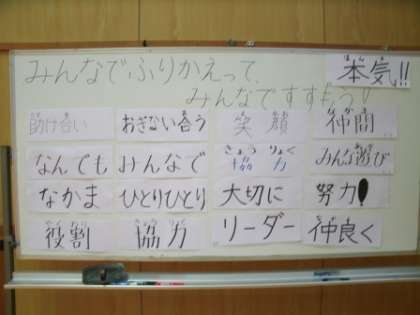 みんなでふりかえって、
みんなですすもう!!
本気!!
助け合い おぎない合う 笑顔 仲間
なんでも みんなで 協力 みんな遊び
なかま ひとりひとり 大切に 努力!
役割 協力 リーダー 仲良く